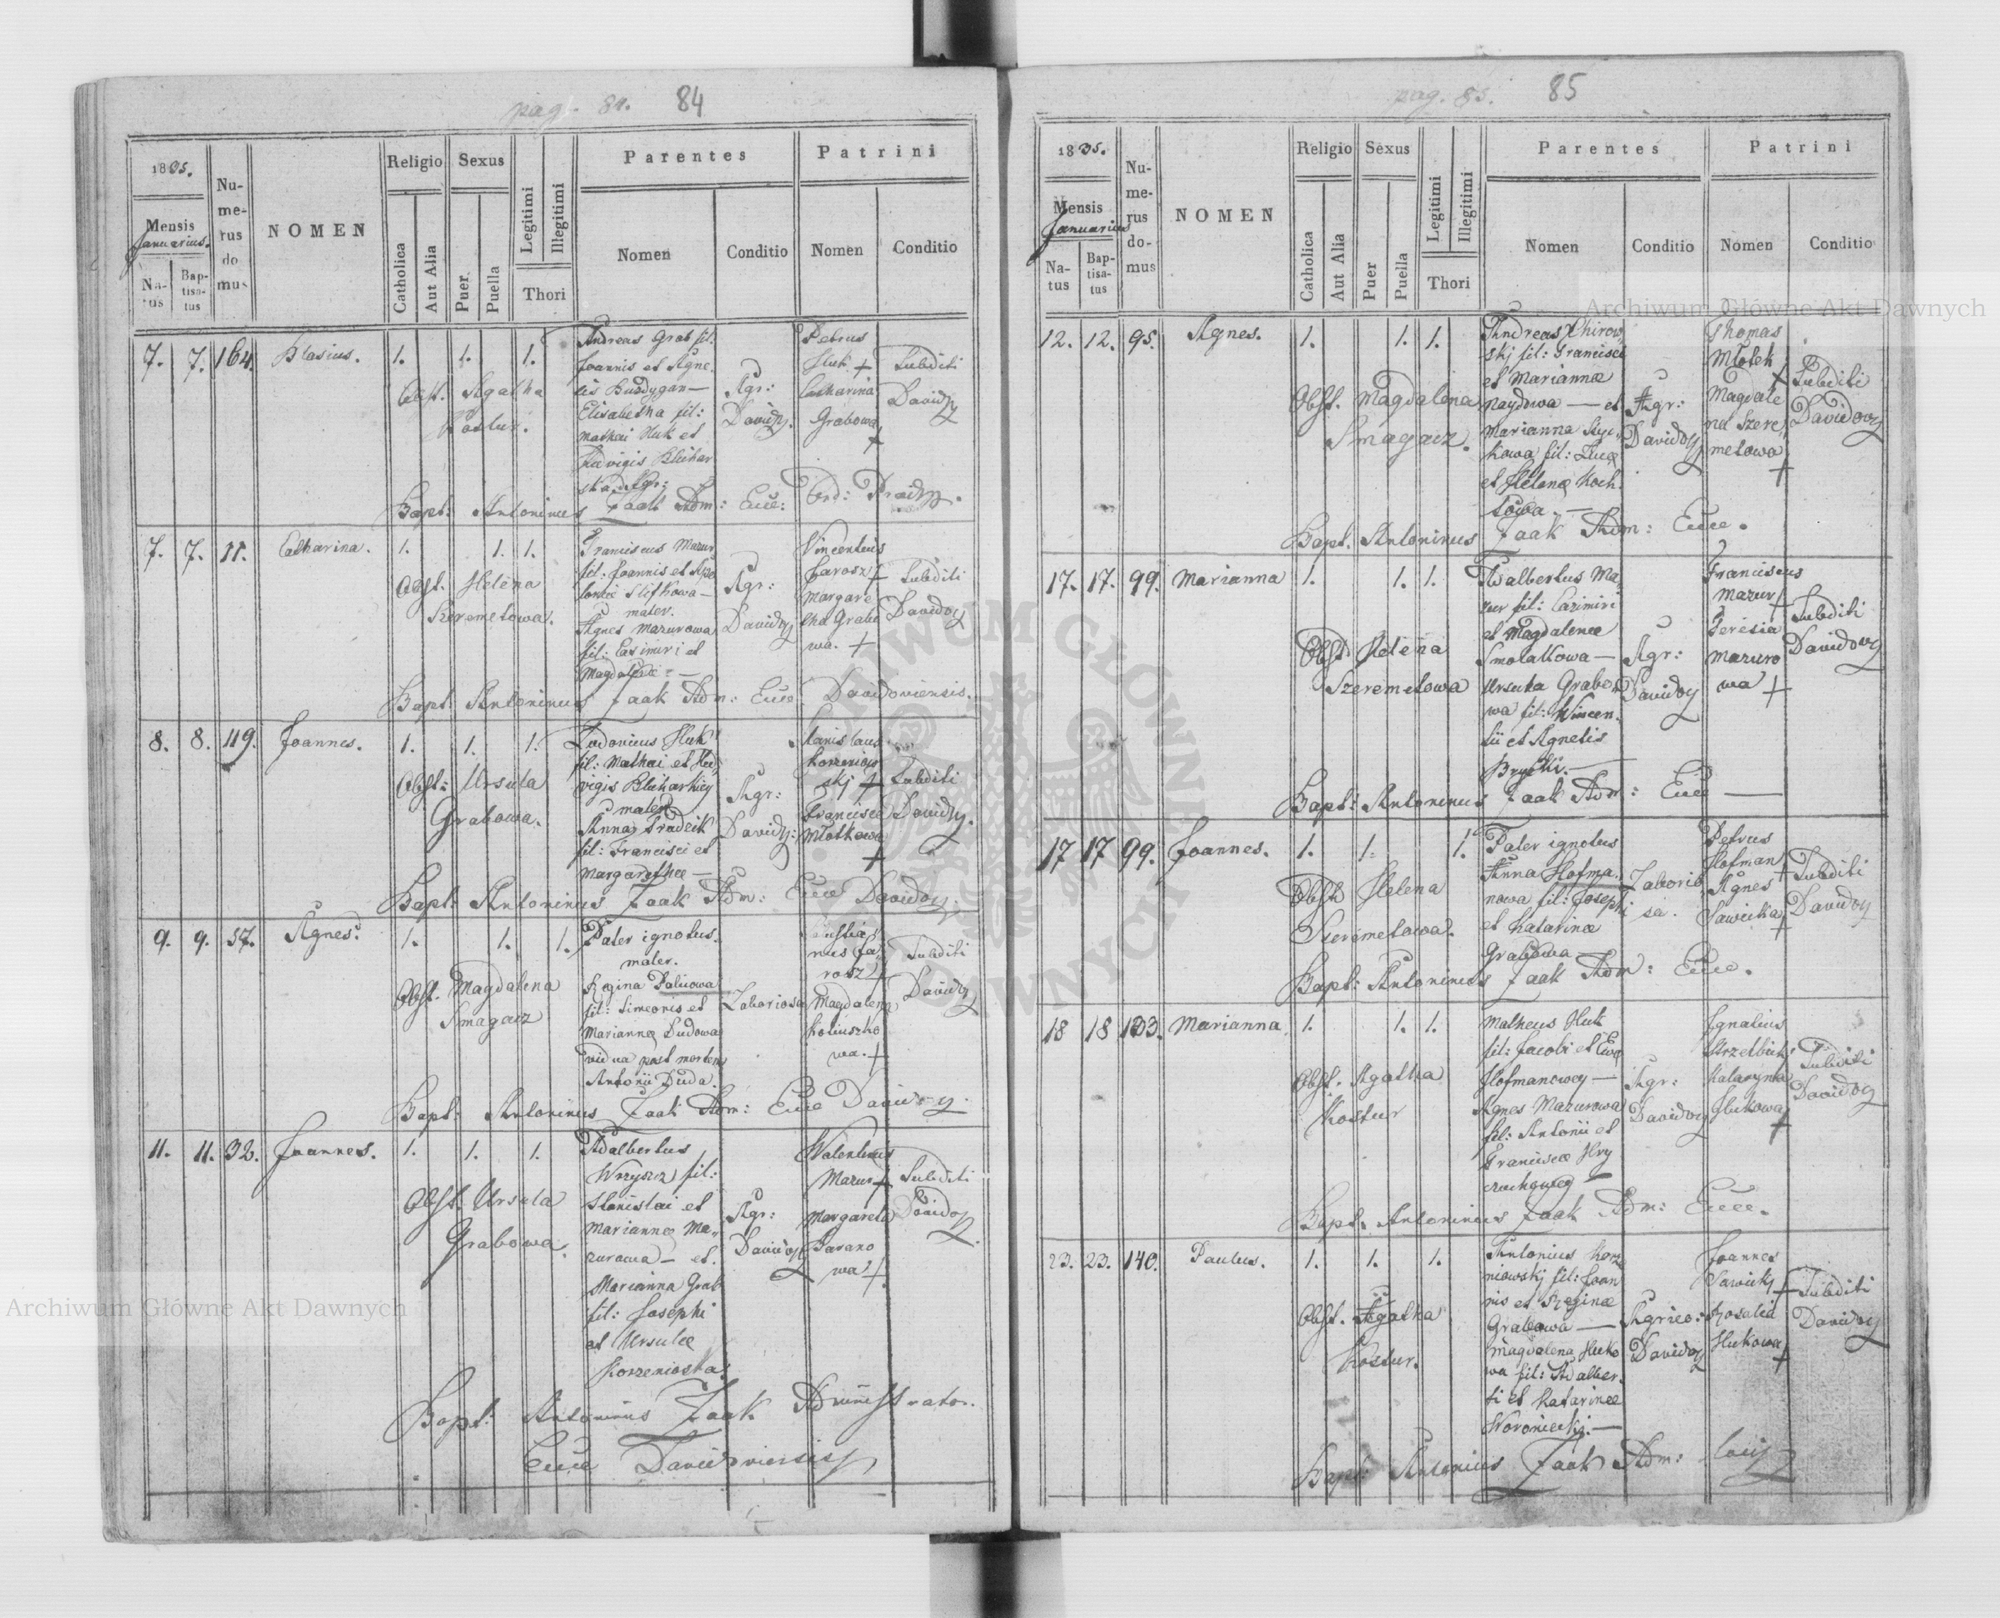 pag. 84. 84
1835.
Mensis
Januarius.
Natus
Baptisatus
Numerus domus
NOMEN
Religio
Catholica
Aut Alia
Sexus
Puer
Puella
Legitimi
Illegitimi
Thori
Parentes
Nomen
Conditio
Patrini
Nomen
Conditio
7. 7. 164. Blasius. 1. 1. 1.
Andreas Grab fil:
Joannis et Agne-
tis Burdygan —
Elisabetha fil:
Mathai Huk et
Hedvigis Blichar
ska
Agr:
Davidoy.
Petrus
Huk +
Catharina
Grabowa
+
Subditi
Davidoy
Obst. Agatha
Kostur.
Bapt: Antoninus Zaak Adm: Eccl:
7. 7. 11. Catharina. 1. 1. 1.
Franciscus Mazur
fil: Joannis et Apo
loniæ Slifkowa —
mater.
Agnes Mazurowa
fil: Casimiri et
Magdalenæ —
Agr:
Davidoy
Vincentius
Jarosz +
Margare
tha Grabo
wa. +
Subditi
Davidoy
Obst. Helena
Szeremetowa.
Bapt: Antoninus Zaak Adm: Eccl: Davidoviensis.
8. 8. 119. Joannes. 1. 1. 1.
Ludovicus Huk
fil: Mathai et Hed
vigis Blicharkiey
mater
Anna Hradeik
fil: Francisci et
Margarethæ —
Agr:
Davidoy:
Stanislaus
Korzeniow
skj +
Francisca
Młotkowa
+
Subditi
Davidoy.
Obst: Ursula
Grabowa.
Bapt: Antoninus Zaak Adm: Eccl Davidoy.
9. 9. 57. Agnes. 1. 1. 1.
Pater ignotus.
mater.
Regina
fil: Simeonis et
Mariannæ Dudowa
vidua post mortem
Antonii Duda.
Zaboriosa
Ja
rosz +
Magdalena
Kosiuszko
wa. +
Subditi
Davidoy
Obst. Magdalena
Smagacz
Bapt: Antoninus Zaak Adm: Eccl Davidoy.
11. 11. 32. Joannes. 1. 1. 1.
Adalbertus
Wrzyszcz fil:
Stanislai et
Mariannæ Ma-
zurowa — et
Marianna Grab
fil: Josephi
et Ursulæ
Korzenioska.
Agr:
Davidoy
Valentinus
Mazur +
Margareta
Barano
wa +
Subditi
Davidoy
Obst. Ursula
Grabowa.
Bapt: Antoninus Zaak Administrator.
Eccl Davidoviensis
pag. 85. 85
1835.
Mensis
Januarius
Natus
Baptisatus
Numerus domus
NOMEN
Religio
Catholica
Aut Alia
Sexus
Puer
Puella
Legitimi
Illegitimi
Thori
Parentes
Nomen
Conditio
Patrini
Nomen
Conditio
12. 12. 95. Agnes. 1. 1. 1.
Andreas Chirow
skj fil: Francisci
et Mariannæ
Naydowa — et
Marianna
kowa fil: Lucæ
et Helenæ Koch
lowa —
Agr:
Davidoy
Thomas
Młotek
+
Magdale
na Szere
metowa
+
Subditi
Davidoy
Obst. Magdalena
Smagacz.
Bapt. Antoninus Zaak Adm: Eccl.
17. 17. 99. Marianna 1. 1. 1.
Adalbertus Ma
zur fil: Cazimiri
et Magdalenæ
Smolakowa —
Ursula Grabo
wa fil: Vincen
tii et Agnetis
Brycki. —
Agr:
Davidoy
Franciscus
Mazur
+
Teresia
Mazuro
wa +
Subditi
Davidoy
Obst Helena
Szeremetowa
Bapt: Antoninus Zaak Adm: Eccl —
17 17 99. Joannes. 1. 1. 1.
Pater ignotus
Anna Hofma
nowa fil: Josephi
et Katarinæ
Grabowa
Zaborio
sa.
Petrus
Hofman
+
Agnes
Sawicka
+
Subditi
Davidoy
Obst Helena
Szeremetowa.
Bapt: Antoninus Zaak Adm: Eccl.
18 18 103. Marianna. 1. 1. 1.
Matheus Huk
fil: Jacobi et Evæ
Hofmanowey —
Agnes Mazurowa
fil: Antonii et
Franciscæ Hry
Agr:
Davidoy
Ignatius
Strzelbick
Katarynka
Hukowa
+
Subditi
Davidoy
Obst. Agatha
Kostur
Bapt: Antoninus Zaak Adm: Eccl.
23. 23. 140. Paulus. 1. 1. 1.
Antonius Korz
niowskj fil: Joan
nis et Reginæ
Grabowa —
Magdalena Huko
wa fil: Adalber
ti et Katarinæ
Woroniecki. —
Agrico:
Davidoy
Joannes
Sawicky
+
Rosalia
Hukowa
+
Subditi
Davidoy
Obst. Agatha
Kostur.
Bapt: Antonius Zaak Adm: loci
Archiwum Główne Akt Dawnych
Archiwum Główne Akt Dawnych
ARCHIWUM GŁÓWNE AKT DAWNYCH